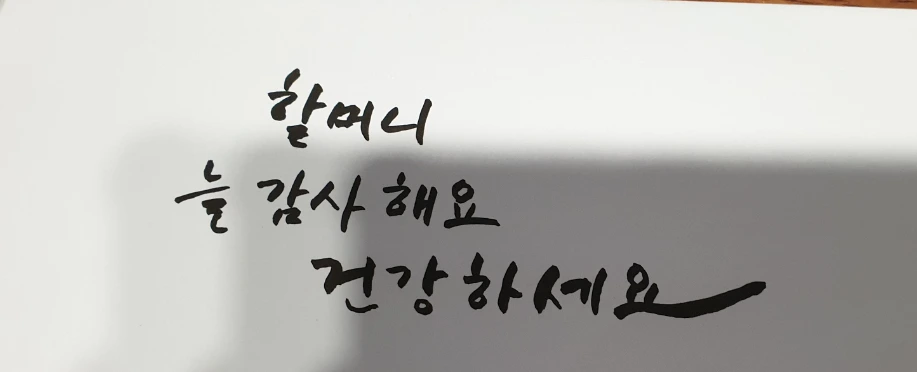 할머니
늘 감사해요
건강하세요